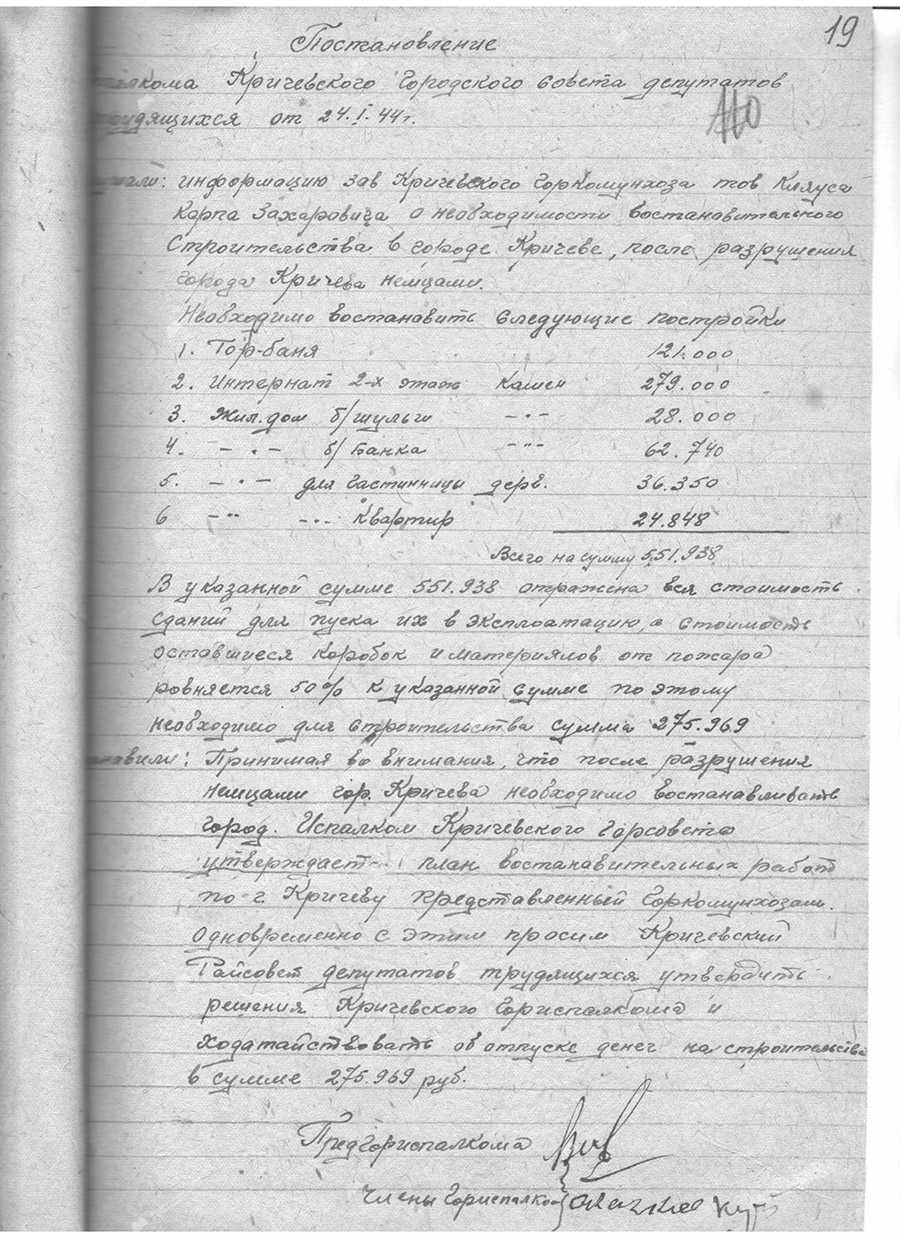 19
Постановление
Кричевского Городского совета депутатов
от 24.I.44г.
информацию зав Кричевского Горкомунхоза тов Кляуса
Карпа Захаровича о необходимости востановительного
Строительства в городе Кричеве, после разрушения
города Кричева немцами.
Необходимо востановить следующие постройки
1. Гор-баня 121.000
2. Интернат 2-х этажа Камен 279.000
3. Жил.дом б/шульги -"- 28.000
4. -"- б/Банка -"- 62.740
5. -"- для гастинницы дерв. 36.350
6 -"- -"- Квартир 24.848
Всего на сумму 551.938
В указанной сумме 551.938 отражена вся стоимость
сданий для пуска их в эксплоатацию, а стоимость
оставшиеся коробок и материялов от пожара
ровняется 50% к указанной сумме по этому
необходимо для строительства сумма 275.969
Принимая во внимания, что после разрушения
немцами гор. Кричева необходимо востанавливать
город. Испалком Кричевского Горсовета
утверждает план востанавительных работ
по г Кричеву представленный Горкомунхозам.
Одновременно с этим просим Кричевский
Райсовет депутатов трудящихся утвердить
решения Кричевского Гориспалкома и
ходатайствовать об отпуске денег на строительства
в сумме 275.969 руб.
Предгориспалкома
Члены Гориспалкома